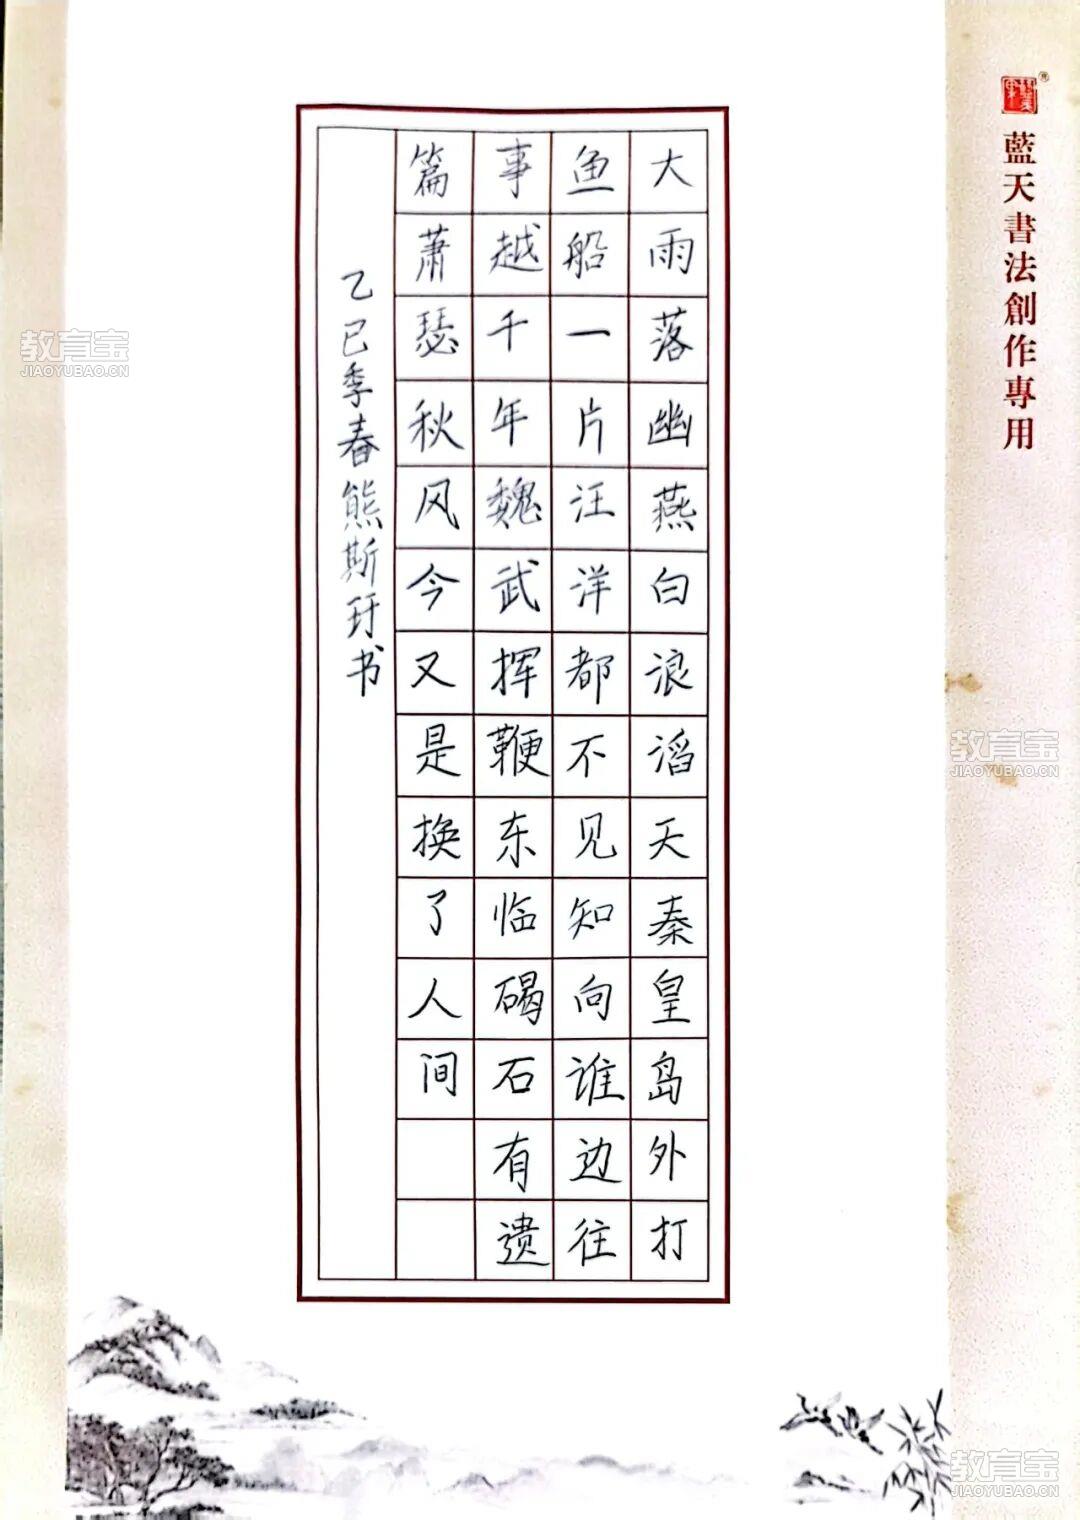 大雨落幽燕白浪滔天秦皇岛外打
鱼船一片汪洋都不见知向谁边往
事越千年魏武挥鞭东临碣石有遗
篇萧瑟秋风今又是换了人间
乙巳季春熊斯玗书
藍天書法創作專用
教育宝
JIAOYUBAO.CN
教育宝
JIAOYUBAO.CN
教育宝
JIAOYUBAO.CN